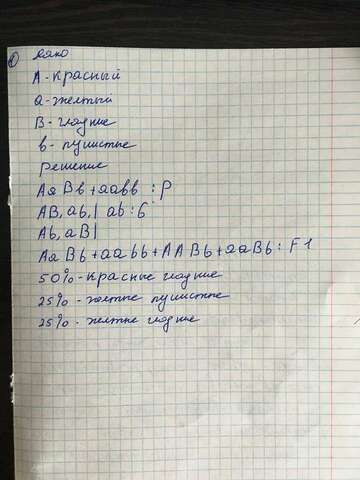 ① Дано
А - красный
а - желтый
В - гладкие
в - пушистые
решение
АаВв + аавв : Р
АВ, ав, | ав : G
Ав, аВ |
АаВв + аавв + ААВв + ааВв : F1
50% - красные гладкие
25% - желтые пушистые
25% - желтые гладкие